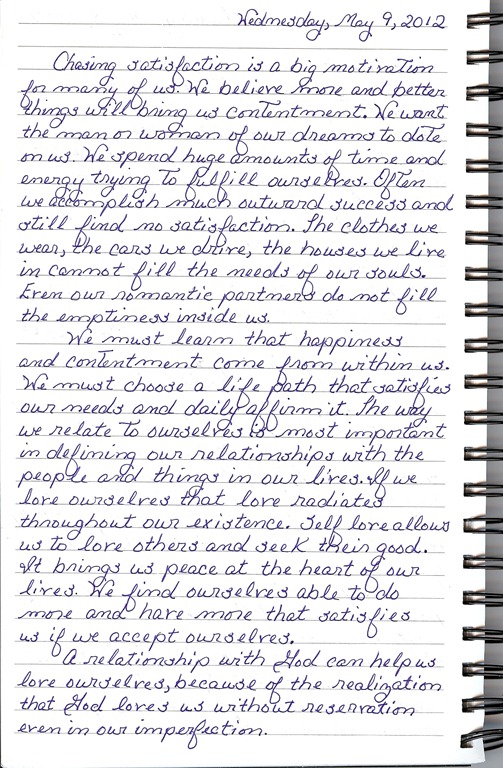 Wednesday, May 9, 2012
Chasing satisfaction is a big motivation
for many of us. We believe more and better
things will bring us contentment. We want
the man or woman of our dreams to dote
on us. We spend huge amounts of time and
energy trying to fulfill ourselves. Often
we accomplish much outward success and
still find no satisfaction. The clothes we
wear, the cars we drive, the houses we live
in cannot fill the needs of our souls.
Even our romantic partners do not fill
the emptiness inside us.
We must learn that happiness
and contentment come from within us.
We must choose a life path that satisfies
our needs and daily affirm it. The way
we relate to ourselves is most important
in defining our relationships with the
people and things in our lives. If we
love ourselves that love radiates
throughout our existence. Self love allows
us to love others and seek their good.
It brings us peace at the heart of our
lives. We find ourselves able to do
more and have more that satisfies
us if we accept ourselves.
A relationship with God can help us
love ourselves, because of the realization
that God loves us without reservation
even in our imperfection.